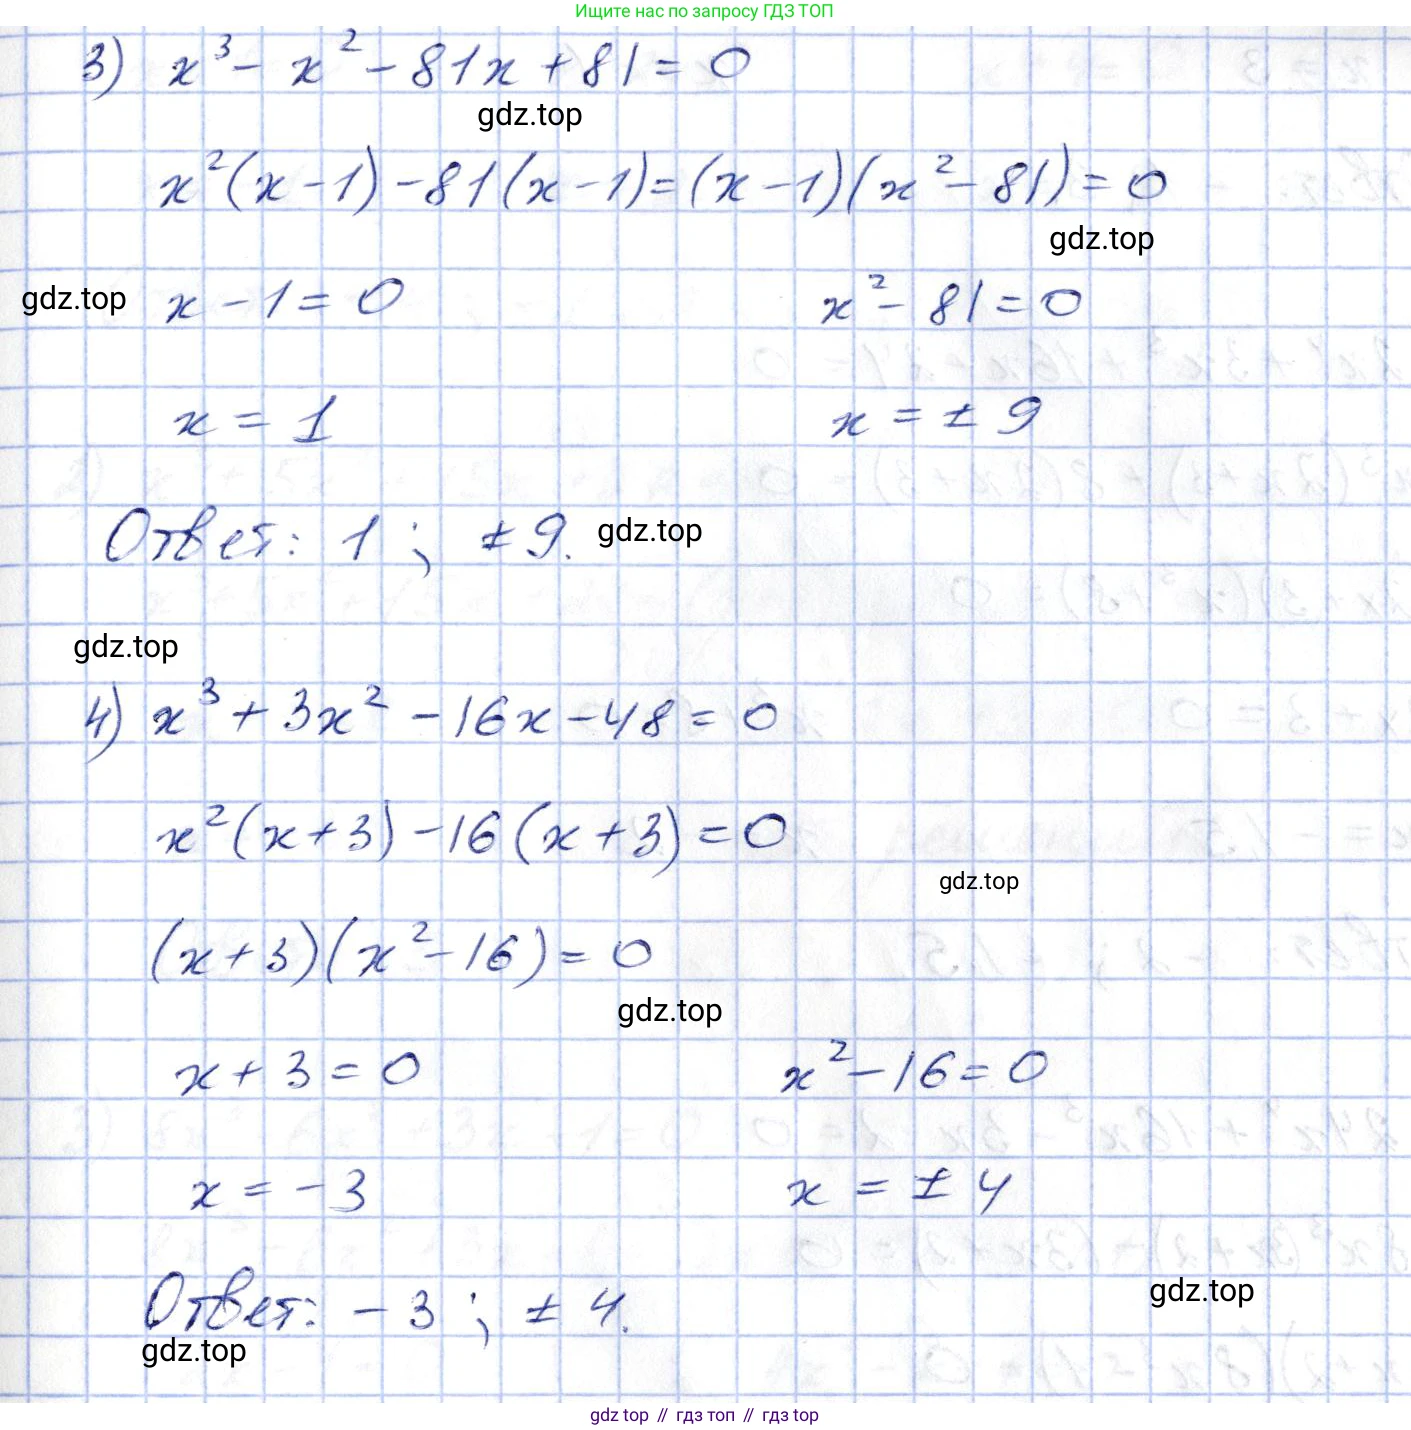 Ищите нас по запросу ГДЗ ТОП
3) x³ - x² - 81x + 81 = 0
gdz.top
x²(x - 1) - 81(x - 1) = (x - 1)(x² - 81) = 0
gdz.top
gdz.top x - 1 = 0 x² - 81 = 0
x = 1 x = ± 9
Ответ: 1 ; ± 9. gdz.top
gdz.top
4) x³ + 3x² - 16x - 48 = 0
x²(x + 3) - 16(x + 3) = 0
gdz.top
(x + 3)(x² - 16) = 0
gdz.top
x + 3 = 0 x² - 16 = 0
x = - 3 x = ± 4
gdz.top
Ответ: - 3 ; ± 4.
gdz.top
gdz top // гдз топ // гдз top